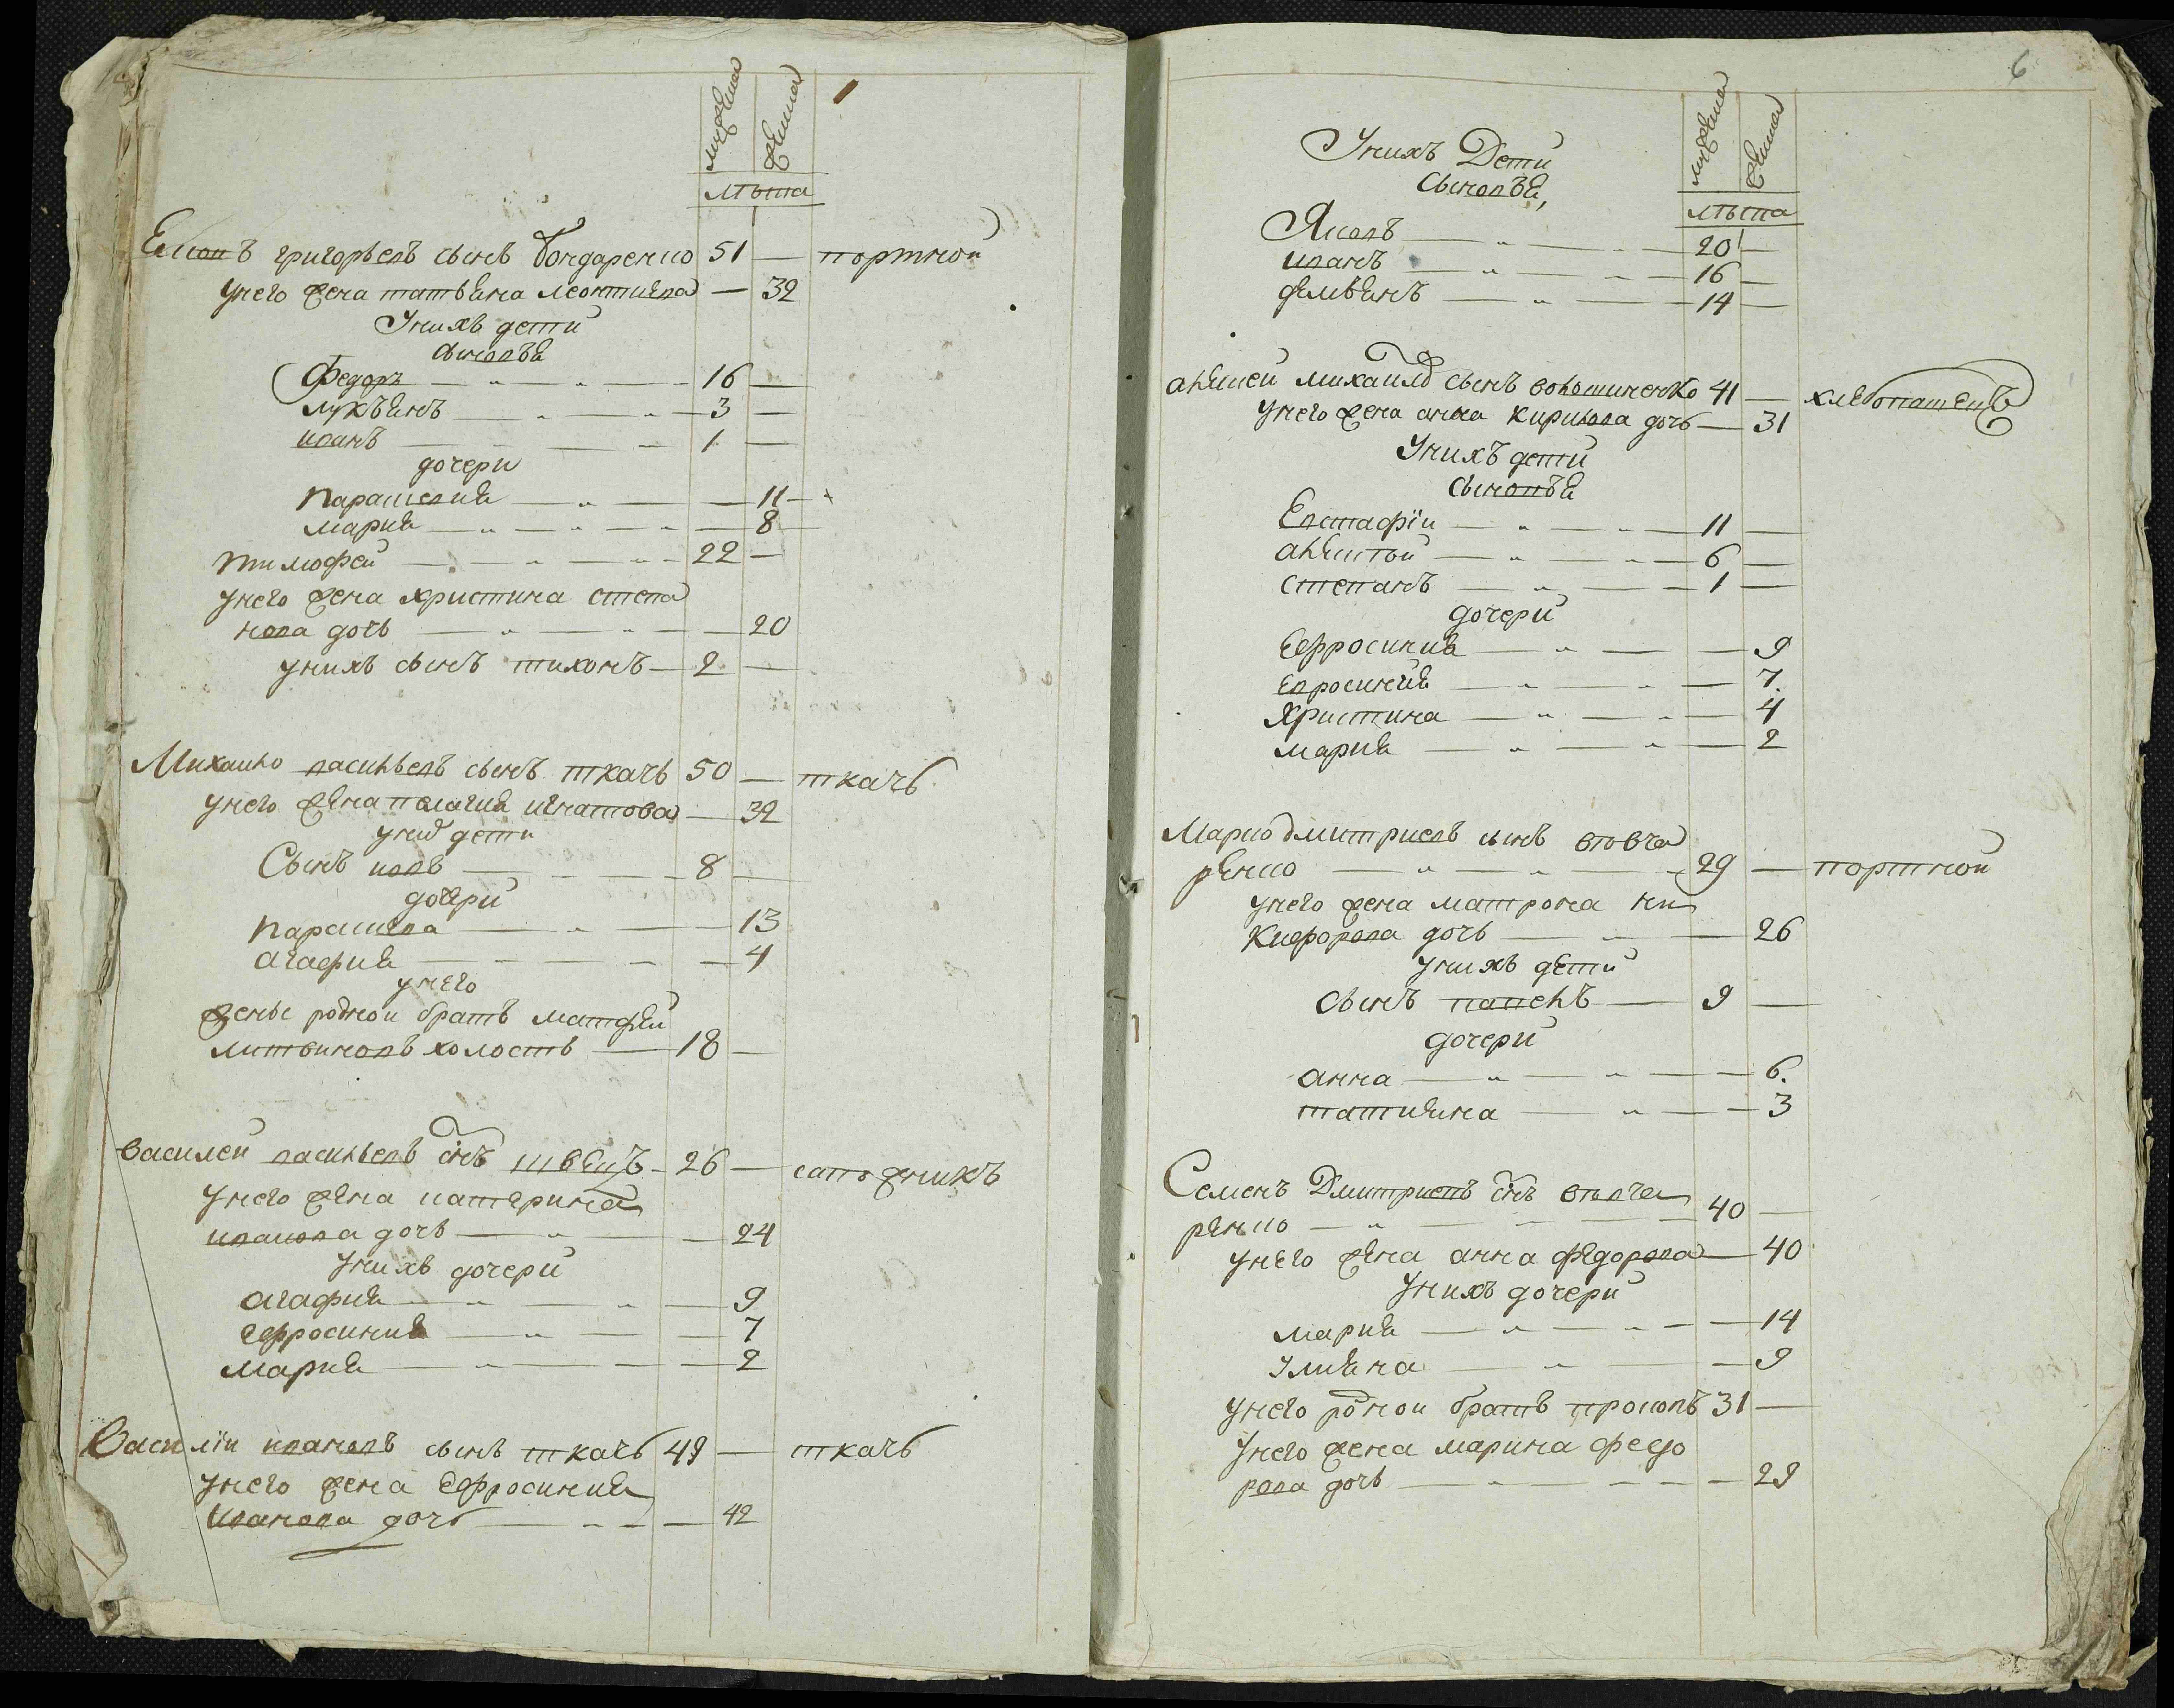 мужеска
женска
лѣта
григорьевъ сынъ бондаренко 51 — портной
унего жена татьяна леонтиева — 32
Унихъ дети
сыновья
Федоръ — 16 —
лукьянъ — 3 —
иванъ — 1 —
дочери
парасковия — 11
мария — 8
тимофей — 22 —
унего жена христина степа
нова дочь — 20
унихъ сынъ тихонъ — 2 —
Михайло васильевъ сынъ ткачь 50 — ткачь
унего жена пелагия игнатова — 32
униⷯ дети
Сынъ иовъ — 8 —
дочери
парасκева — 13
агафия — 4
унего
жены родной братъ матфей
литвиновъ холостъ — 18 —
Василей васильевъ сн҃ъ швецъ — 26 — сапожникъ
Унего жена катерина
иванова дочь — 24
Унихъ дочери
агафия — 9
ефросиния — 7
мария — 2
Василiи ивановъ сынъ ткачь 49 — ткачь
Унего жена Ефросиния
Иванова дочь — 42
6
мужеска
женска
лѣта
Унихъ Дети
сыновья,
Яковъ — 20 —
иванъ — 16 —
демьянъ — 14 —
алексей михайлоⷡ сынъ 41 — хлебопашецъ
Унего жена анна кирилова дочь — 31
Унихъ дети
сыновья
Евстафiи — 11 —
алексей — 6 —
степанъ — 1 —
дочери
Ефросиния — 9
Евросиния — 7
Христина — 4
мария — 2
Марко дмитриевъ сынъ вовча
ренко — 29 — портной
унего жена матрона ни
кифорова дочь — 26
унихъ дети
сынъ павелъ — 9 —
дочери
анна — 6.
татияна — 3
Семенъ Дмитриевъ сн҃ъ вовча
ренко — 40 —
унего жена анна федорова — 40
Унихъ дочери
мария — 14
улияна — 9
унего родной братъ прокопъ 31 —
Унего жена марина федо
рова дочь — 29